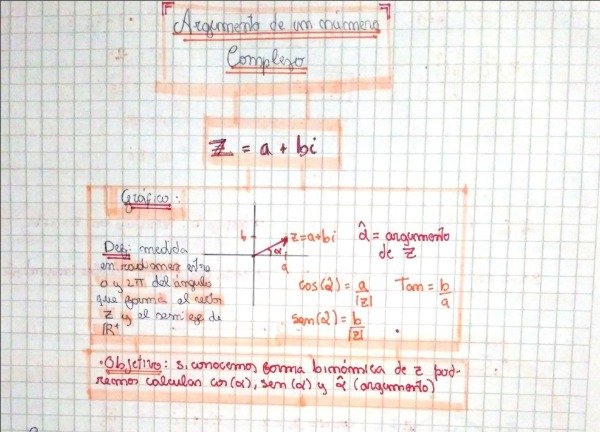 Argumento de un número
Complejo
Z = a + bi
Gráfico:
b
z=a+bi
α
a
α̂ = argumento
de z
Def: medida
en radianes entre
0 y 2π del ángulo
que forma el vector
Z y el semi eje de
ℝ⁺
cos(α̂) = a/|z|
Tan = b/a
sen(α̂) = b/|z|
•Objetivo: si conocemos forma binómica de z pod-
remos calcular cos(α), sen(α) y α̂ (argumento)